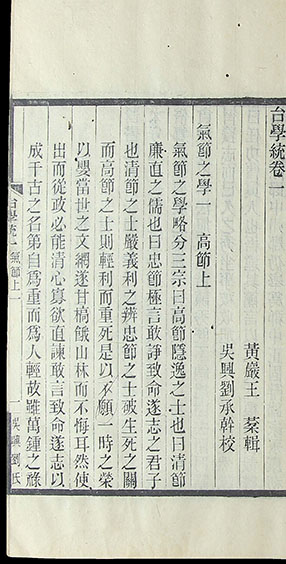 台學統卷一
黃巖王棻輯
吳興劉承幹校
氣節之學一　高節上
氣節之學略分三宗曰高節隱逸之士也曰清節
廉直之儒也曰忠節極言敢諍致命遂志之君子
也清節之士嚴義利之辨忠節之士破生死之關
而高節之士則輕利而重死是以不願一時之榮
以嬰當世之文網遂甘槁餓山林而不悔耳然使
出而從政必能清心寡欲直諫敢言致命遂志以
成千古之名第自爲重而爲人輕故雖萬鍾之祿
台學統一　氣節上　一　吳興劉氏